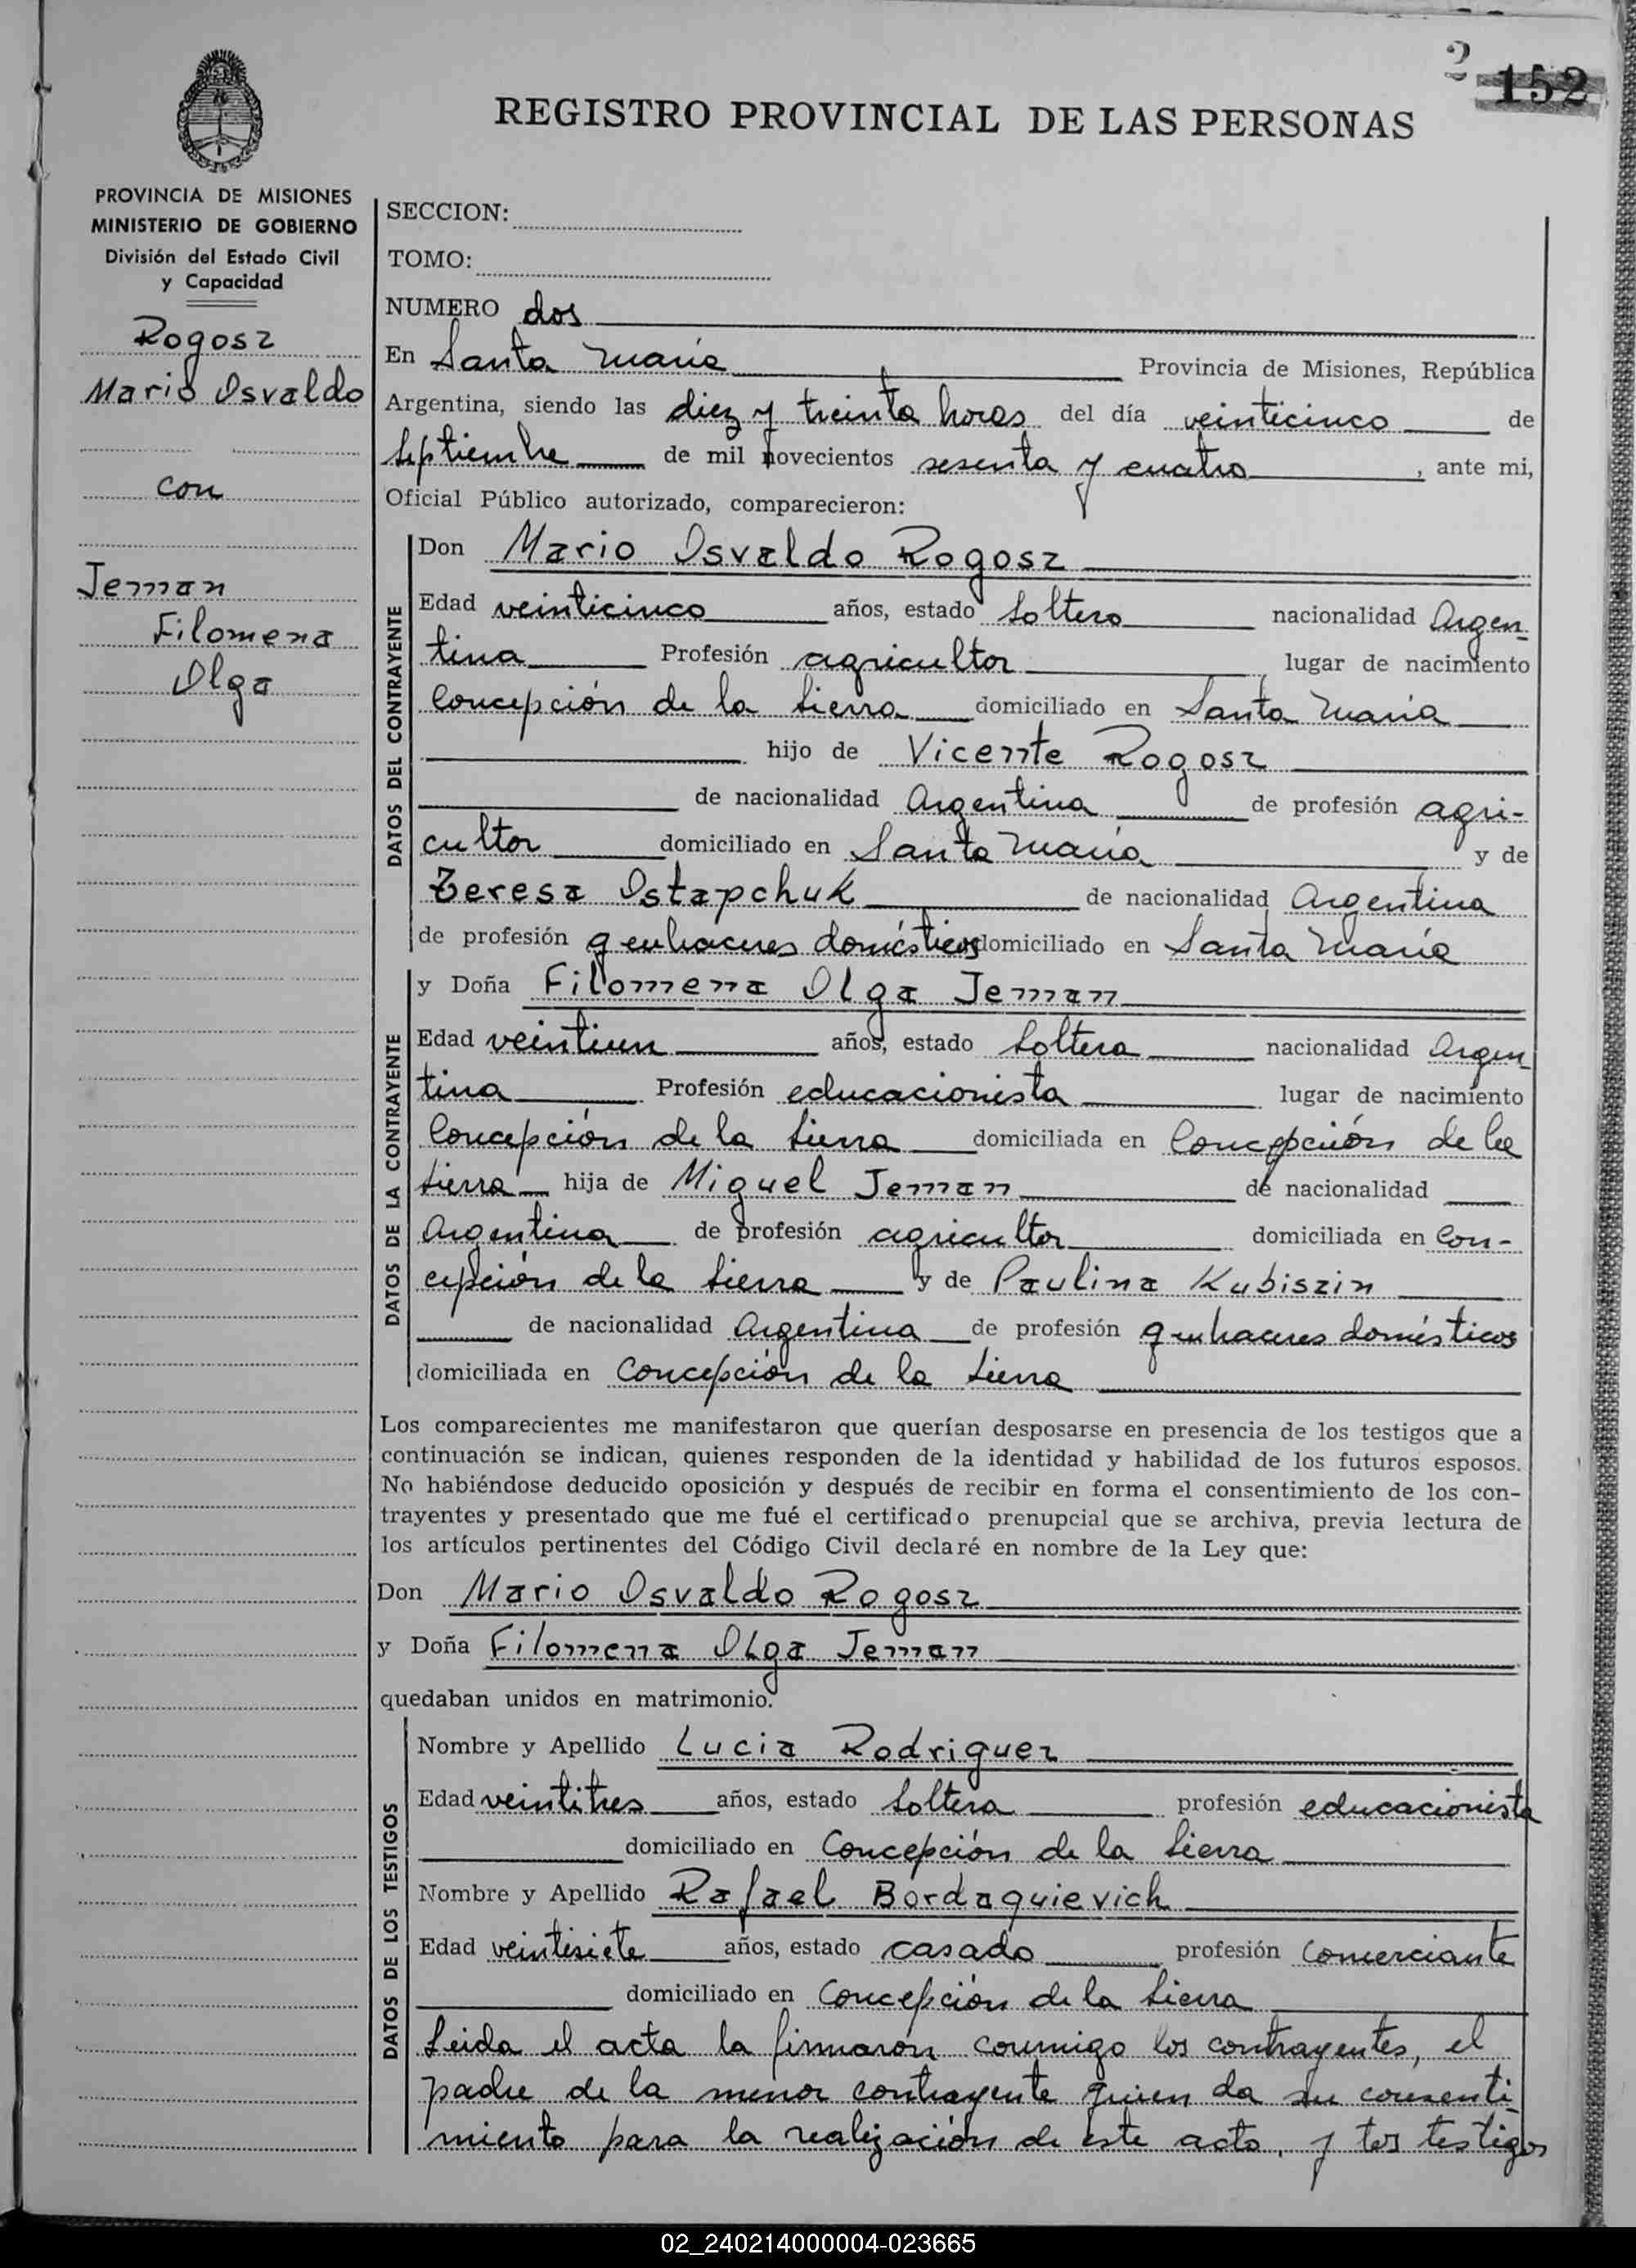 2 152
REGISTRO PROVINCIAL DE LAS PERSONAS
PROVINCIA DE MISIONES
MINISTERIO DE GOBIERNO
División del Estado Civil
y Capacidad
Rogosz
Mario Osvaldo
con
Jeman
Filomena
Olga
SECCION:
TOMO:
NUMERO dos
En Santa María Provincia de Misiones, República
Argentina, siendo las diez y treinta horas del día veinticinco de
septiembre de mil novecientos sesenta y cuatro, ante mi,
Oficial Público autorizado, comparecieron:
DATOS DEL CONTRAYENTE
Don Mario Osvaldo Rogosz
Edad veinticinco años, estado soltero nacionalidad Argen-
tina Profesión agricultor lugar de nacimiento
Concepción de la Sierra domiciliado en Santa María
hijo de Vicente Rogosz
de nacionalidad Argentina de profesión agri-
cultor domiciliado en Santa María y de
Teresa Ostapchuk de nacionalidad Argentina
de profesión quehaceres domésticos domiciliado en Santa María
DATOS DE LA CONTRAYENTE
y Doña Filomena Olga Jeman
Edad veintiun años, estado soltera nacionalidad Argen
tina Profesión educacionista lugar de nacimiento
Concepción de la Sierra domiciliada en Concepción de la
Sierra hija de Miguel Jeman de nacionalidad
Argentina de profesión agricultor domiciliada en Con-
cepción de la Sierra y de Paulina Kubiszin
de nacionalidad Argentina de profesión quehaceres domésticos
domiciliada en Concepción de la Sierra
Los comparecientes me manifestaron que querían desposarse en presencia de los testigos que a
continuación se indican, quienes responden de la identidad y habilidad de los futuros esposos.
No habiéndose deducido oposición y después de recibir en forma el consentimiento de los con-
trayentes y presentado que me fué el certificado prenupcial que se archiva, previa lectura de
los artículos pertinentes del Código Civil declaré en nombre de la Ley que:
Don Mario Osvaldo Rogosz
y Doña Filomena Olga Jeman
quedaban unidos en matrimonio.
DATOS DE LOS TESTIGOS
Nombre y Apellido Lucia Rodriguez
Edad veintitres años, estado soltera profesión educacionista
domiciliado en Concepción de la Sierra
Nombre y Apellido Rafael Bordaquievich
Edad veintisiete años, estado casado profesión comerciante
domiciliado en Concepción de la Sierra
Leida el acta la firmaron conmigo los contrayentes, el
padre de la menor contrayente quien da su consenti
miento para la realización de este acto, y los testigos
02_240214000004-023665